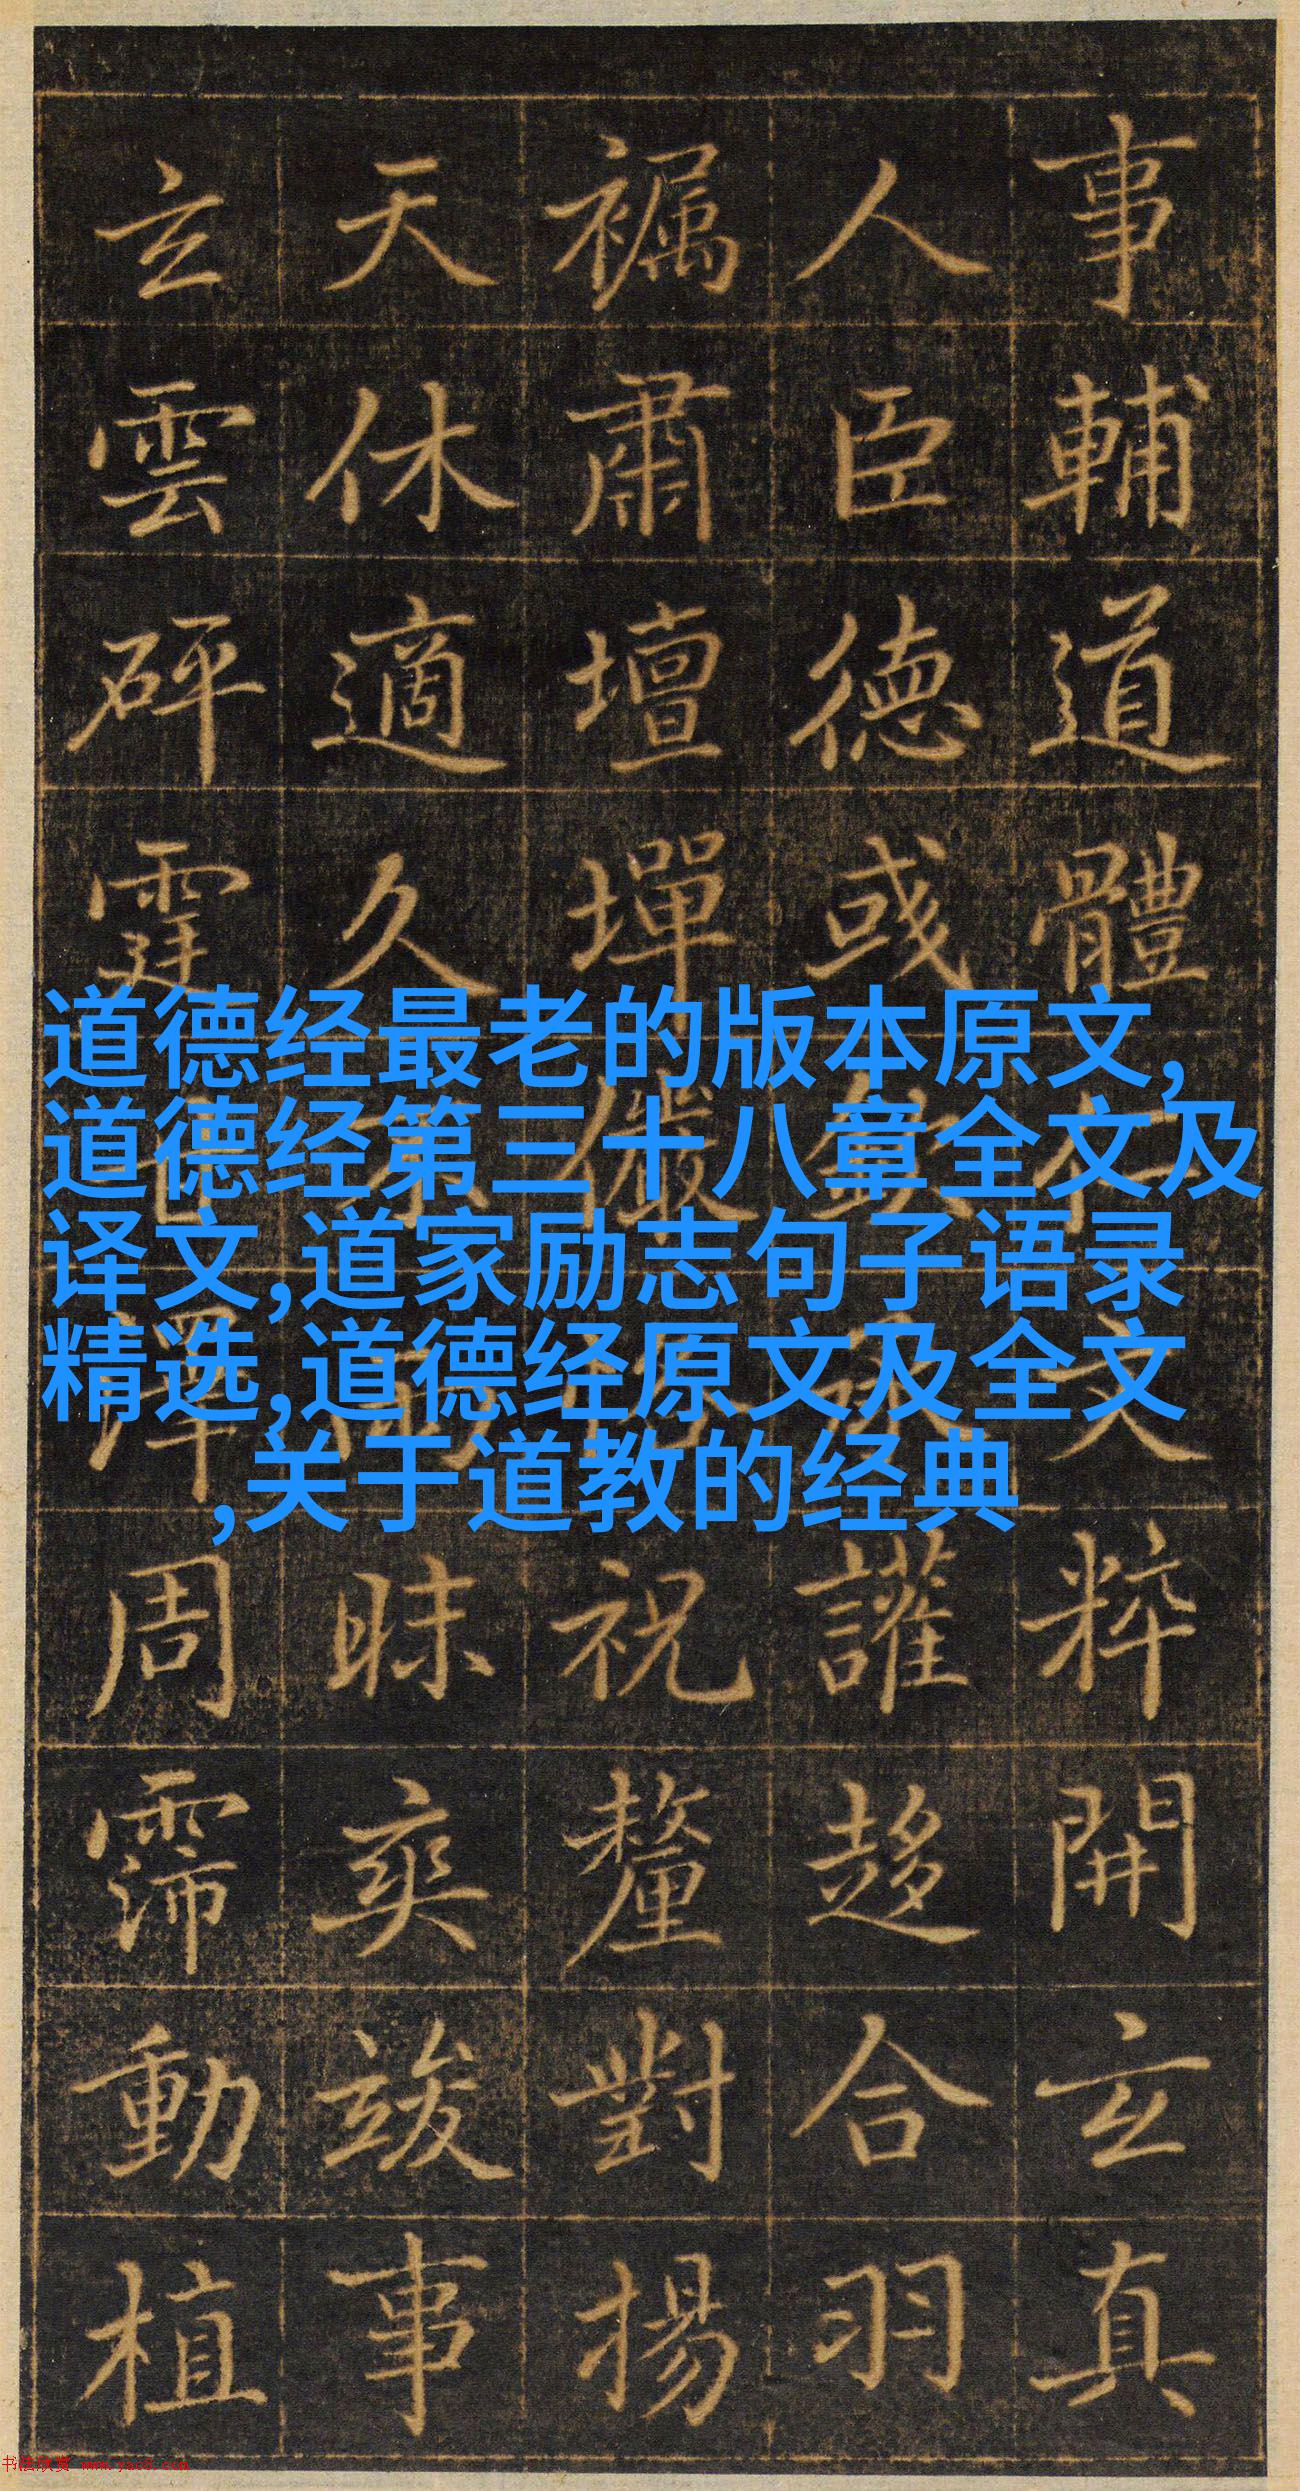 事輔道體文粹開玄真
人臣德或讙趍合羽
襡肅壇墠儼祝釐對揚
天休適久昧爽竣事
玄雲砰霆澤周霈動植
道德经最老的版本原文,
道德经第三十八章全文及
译文,道家励志句子语录
精选,道德经原文及全文
,关于道教的经典
书法欣赏 www.yac8.com